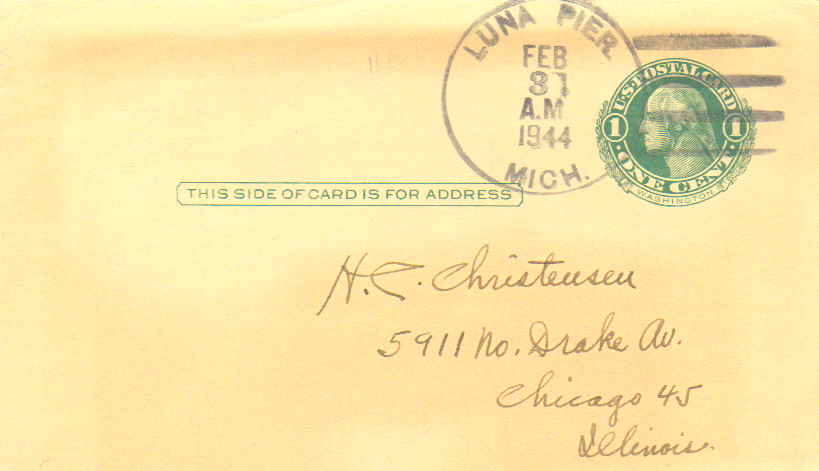 LUNA PIER.
FEB
A.M
1944
MICH.
U.S. POSTAL CARD
1 1
ONE CENT
WASHINGTON
THIS SIDE OF CARD IS FOR ADDRESS
H. C. Christensen
5911 No. Drake Av.
Chicago 45
Illinois.